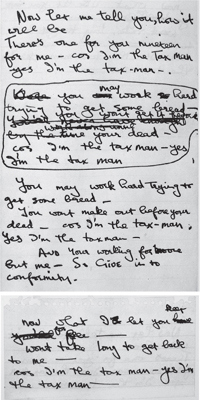 Now let me tell you, how it
will be
There's one for you nineteen
for me - cos I'm the Tax man
yes I'm the tax-man-.
you may work Hard
trying to get some bread -
by the time your dead
cos I'm the tax man - yes
I'm the tax man
You may work hard trying to
get some bread -
You wont make out before your
dead - cos I'm the tax-man,
yes I'm the taxman -
And your working for
but me - So Give in to
conformity.
now what I let you keep
wont take long to get back
to me -
cos I'm the tax man - yes I'm
the tax man